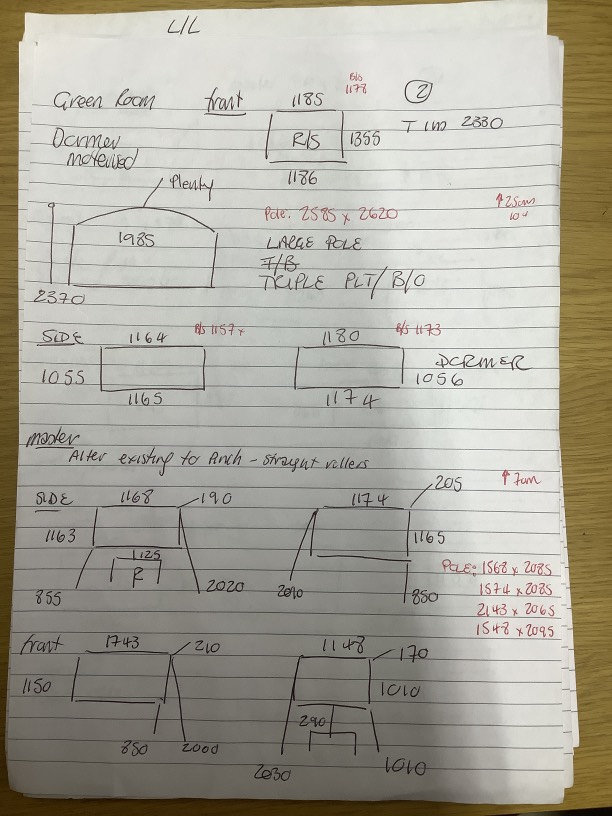 L/L
Green Room front 1185 B/S 1178 2
R/S 1355 T 1187 2330
1186
Plenty
1985
2370
Pole: 2585 x 2620
↑25cms
LARGE POLE
I/B
TRIPLE PLT/ B/O
SIDE 1164 B/S 1157 x
1055
1165
1180 B/S 1173
DORMER
1056
1174
master
Alter existing to Pinch - straight rollers
SIDE 1168 190
1163
1125
R
855 2020
1174 205 ↑7cm
1165
2090 850
POLE: 1568 x 2085
1574 x 2085
2143 x 2065
1548 x 2095
front 1743 210
1150
850 2000
1148 170
1010
290
2030 1010